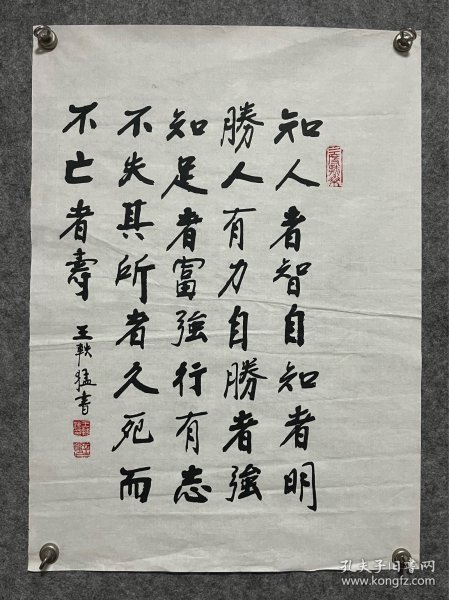 知人者智自知者明
勝人有力自勝者強
知足者富強行有志
不失其所者久死而
不亡者壽
王軼猛書
孔夫子旧书网
www.kongfz.com